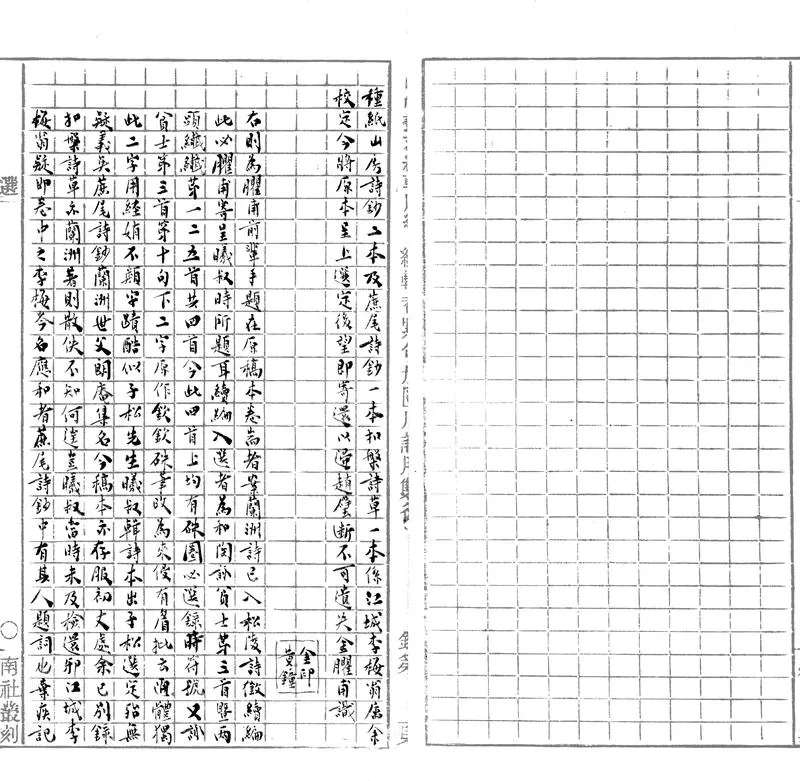 種紙山房詩鈔二本及蔗尾詩鈔一本扣槃詩草一本係江城李梅翁屬余
校定今將原本呈上選定後望即寄還以還趙璧斷不可遺失金臞甫識
金印
黃鍾
右則為臞甫前輩手題在原稿本卷耑者案蘭洲詩已入松陵詩徵續編
此必臞甫寄呈曦叔時所題耳續編入選者為和閔詠貧士等三首暨兩
頭纖纖第一二五首共四首今此四首上均有硃圈必選錄時符號又詠
貧士第三首第十句下二字原作欽欽硃筆改為來侵有眉批云陶體獨
此二字用經娋不類字蹟酷似子松先生曦叔輯詩本出子松選定殆無
疑義矣蔗尾詩鈔蘭洲世父朗齋集名今稿本亦存服初丈處余已別錄
扣槃詩草亦蘭洲著則散佚不知何往豈曦叔當時未及檢還邪江城李
梅翁疑即卷中之李梅岑名應和者蔗尾詩鈔中有其人題詞也棄疾記
選
南社叢刻